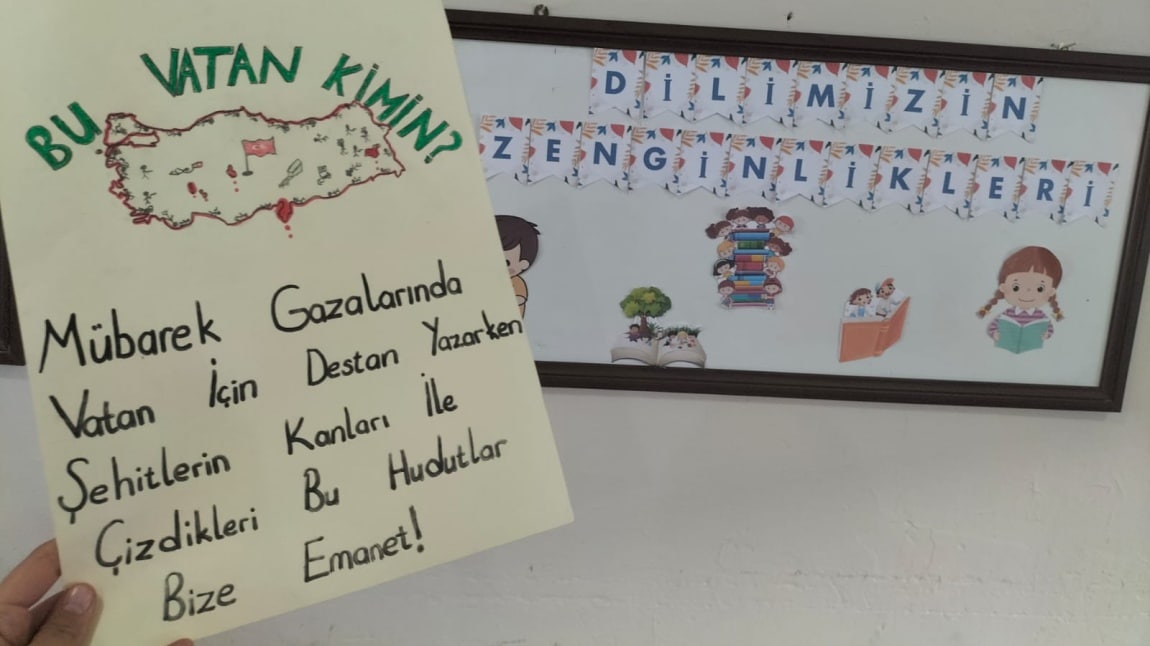 BU VATAN KİMİN?
Mübarek Gazalarında
Vatan İçin Destan Yazarken
Şehitlerin Kanları İle
Çizdikleri Bu Hudutlar
Bize Emanet!
DİLİMİZİN
ZENGİNLİKLERİ